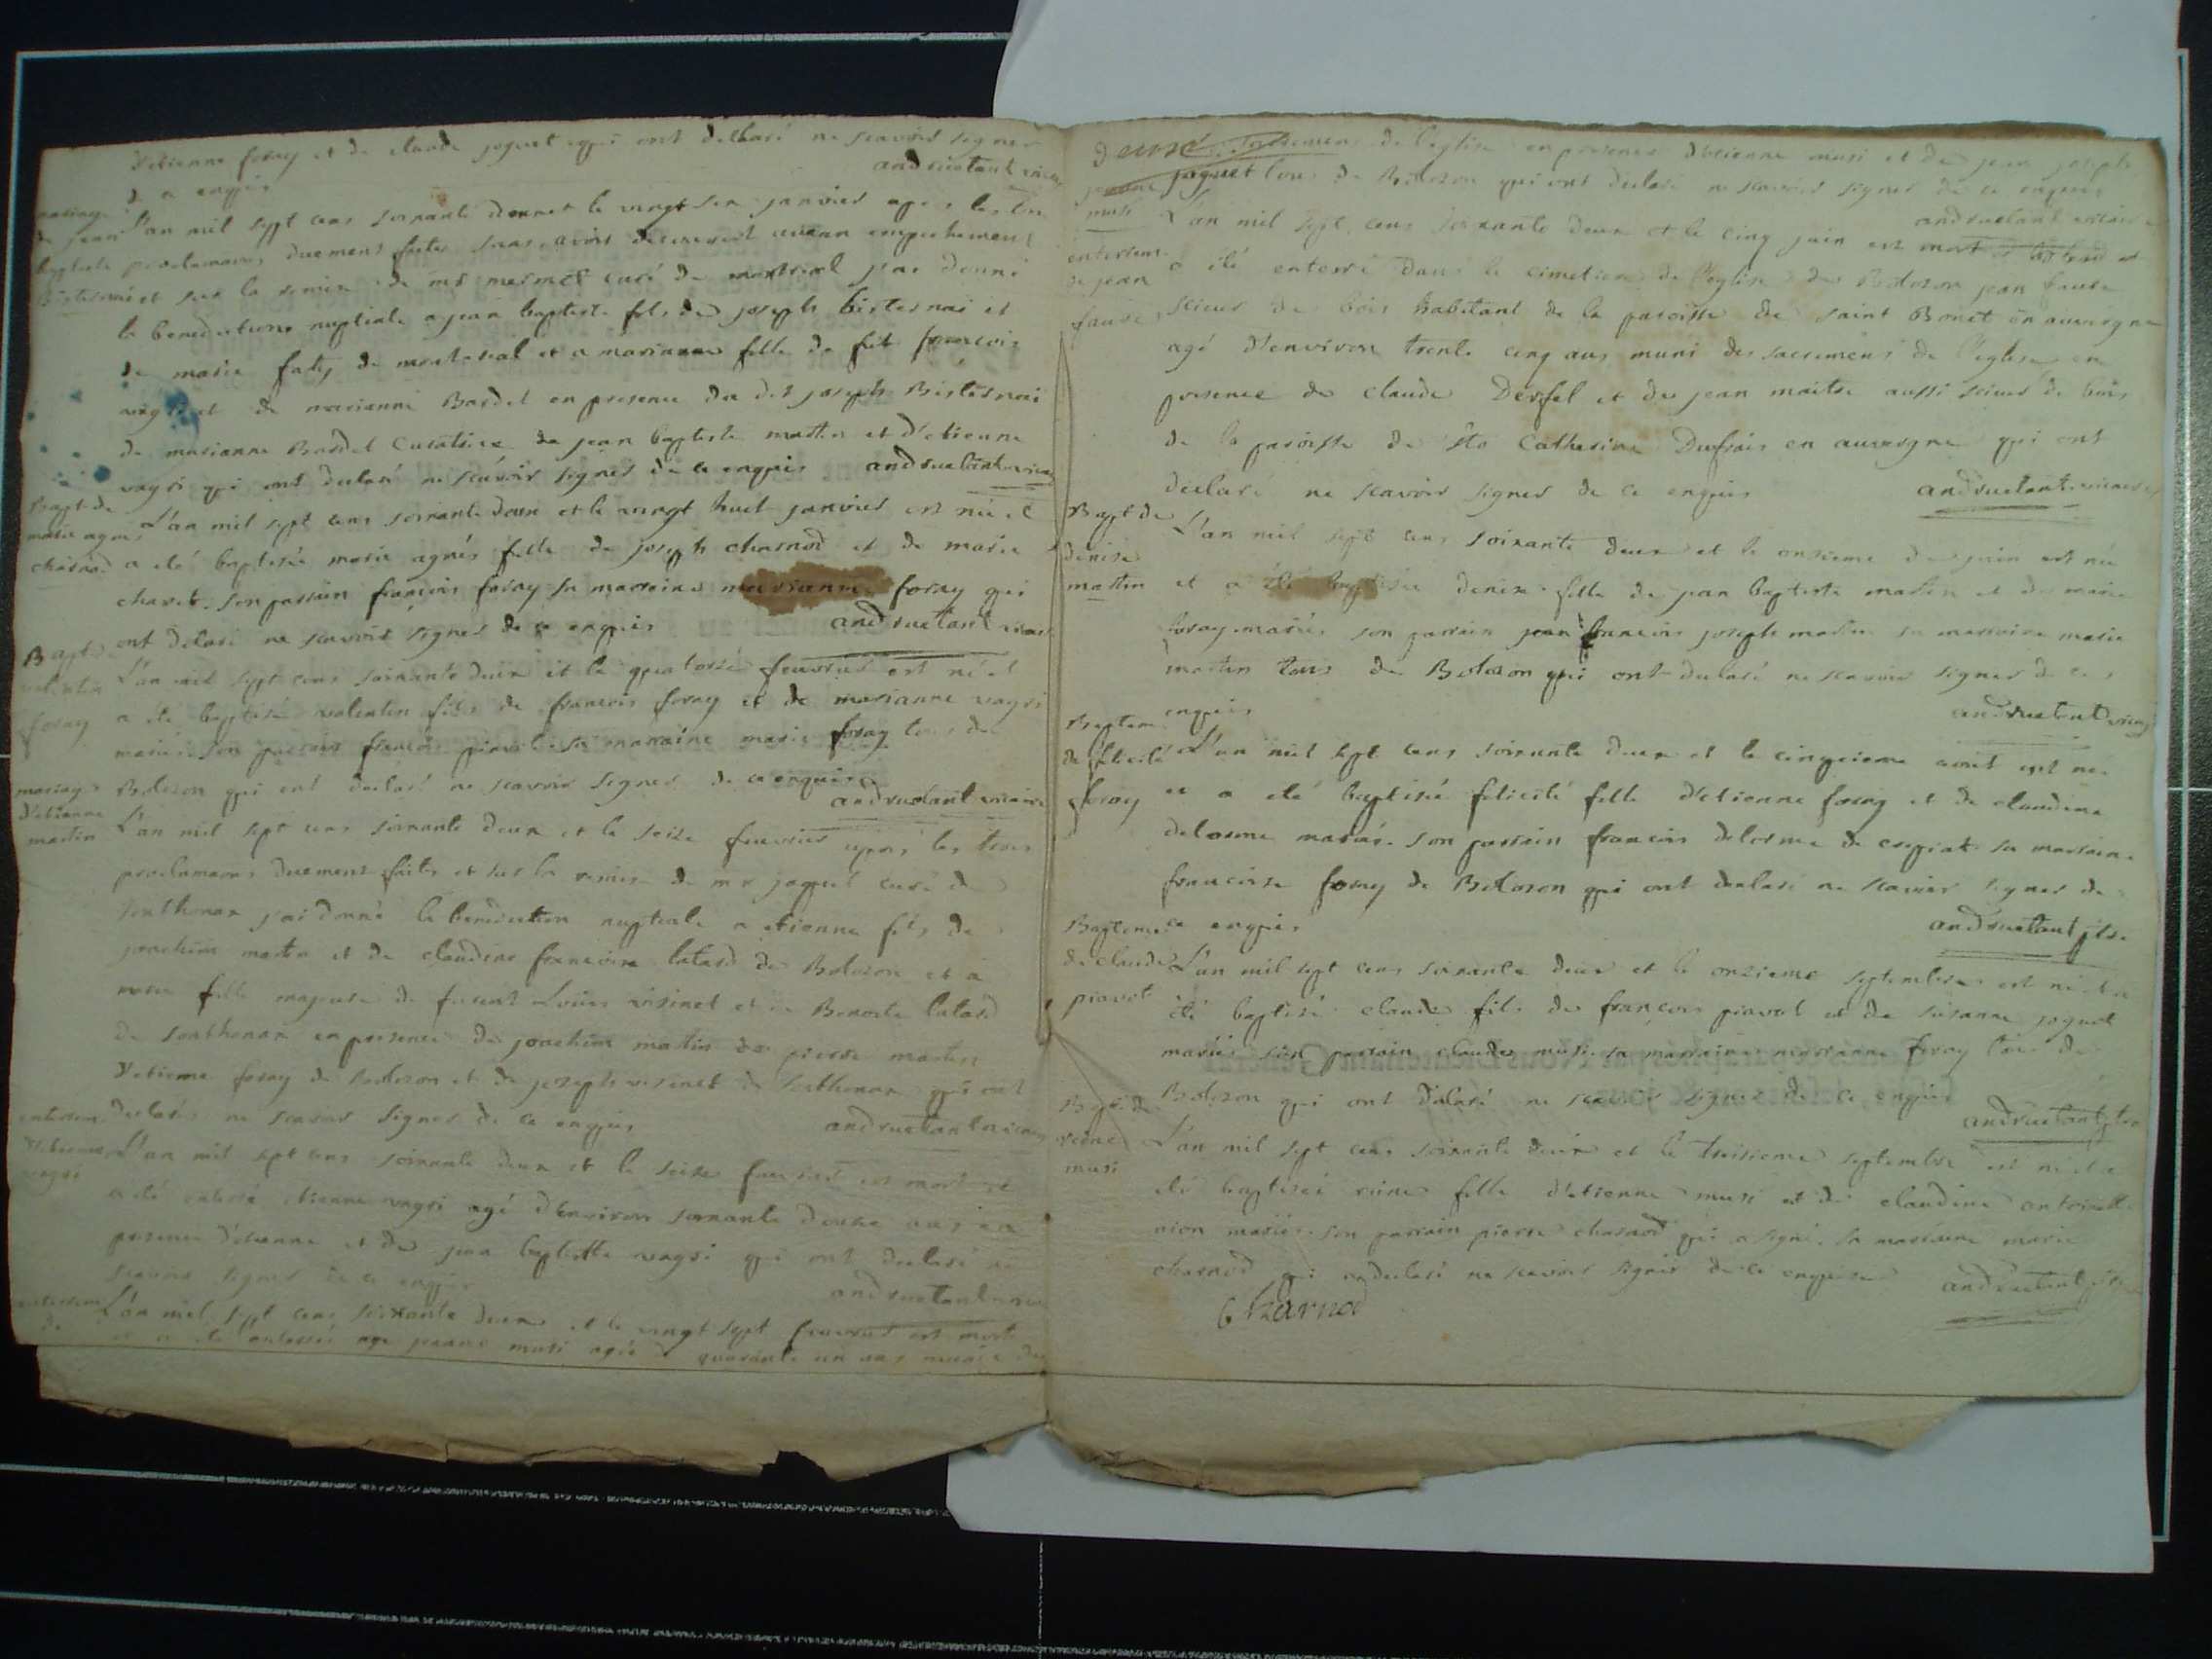 d'etienne foray et de claude joguet qui ont declaré ne scavoir signer
de ce enquis
andruetant vicaire
mariage
de jean
baptiste
bisternai
L'an mil sept cens soixante deux et le vingt six janvier après les trois
proclamaons duement faites sans avoir decouvert aucun empechement
et sur la remise de mr mermet curé de montreal j'ai donné
la benediction nuptiale a jean baptiste fils de joseph bisternai et
de marie faty de montreal et a marianne fille de fût françois
vagri et de marianne Bardet en presence du dit joseph Bisternai
de marianne Bardet curatrice de jean baptiste martin et d'etienne
vagri qui ont declaré ne scavoir signer de ce enquis andruetant vicaire
Bapt de
marie agnes
charnod
L'an mil sept cens soixante deux et le vingt huit janvier est née et
a eté baptisée marie agnés fille de joseph charnod et de marie
charet. son parrain françois foray sa marraine marianne foray qui
ont declaré ne scavoir signer de ce enquis andruetant vicaire
Bapt de
valentin
foray
L'an mil sept cens soixante deux et le quatorze fevrier est né et
a été baptisé valentin fils de françois foray et de marianne vagri
mariés. son parrain françois piavot sa marraine marie foray tous de
Bolozon qui ont declaré ne scavoir signer de ce enquis
andruetant vicaire
mariage
d'etienne
martin
L'an mil sept cens soixante deux et le seize fevrier après les trois
proclamaons duement faites et sur la remise de mr joguet curé de
sonthonax j'ai donné la benediction nuptiale a etienne fils de
joachim martin et de claudine françoise latard de Bolozon et a
fille majeure de Louis visinet et de Benoite latard
de sonthonax en presence de joachim martin de pierre martin
d'etienne foray de bolozon et de joseph visinet de sonthonax qui ont
declarés ne scavoir signer de ce enquis andruetant vicaire
enterrem
d'etienne
vagri
L'an mil sept cens soixante deux et le seize fevrier est mort et
a été enterré etienne vagri agé d'environ soixante douze ans en
presence d'etienne et de jean baptiste vagri qui ont declaré ne
scavoir signer de ce enquis andruetant vicaire
enterrem
de
L'an mil sept cens soixante deux et le vingt sept fevrier est morte
et a eté enterrée jeanne musi agée de quarante un ans munie des
jeanne
musi
sacremens de l'eglise en presence d'etienne musi et de jean joseph
joguet tous de Bolozon qui ont declaré ne scavoir signer de ce enquis
andruetant vicaire
enterrem
de jean
faure
L'an mil sept cens soixante deux et le cinq juin est mort et
a été enterré dans le cimetiere de l'eglise de Bolozon jean faure
scieur de bois habitant de la paroisse de saint Bonet en auvergne
agé d'environ trente cinq ans muni des sacremens de l'eglise en
presence de claude et de jean maitre aussi scieur de bois
de la paroisse de ste Catherine Dufrais en auvergne qui ont
declaré ne scavoir signer de ce enquis andruetant vicaire
Bapt de
denise
martin
L'an mil sept cens soixante deux et le onzieme de juin est née
et a été baptisée denise fille de jean baptiste martin et de marie
foray mariés son parrain jean françois joseph martin sa marraine marie
martin tous de Bolozon qui ont declaré ne scavoir signer de ce
enquis
andruetant vicaire
Baptem
de felicité
foray
L'an mil sept cens soixante deux et le cinquieme aout est née
et a eté baptisée felicité fille d'etienne foray et de claudine
delorme mariés. son parrain françois delorme de crepiat sa marraine
françoise foray de Bolozon qui ont declaré ne scavoir signer de
ce enquis
andruetant ptre
Bapteme
de claude
piavot
L'an mil sept cens soixante deux et le onzieme septembre est né et a
été baptisé claude fils de françois piavot et de susanne joguet
mariés son parrain claude musi sa marraine marianne foray tous de
Bolozon qui ont declaré ne scavoir signer de ce enquis
andruetant ptre
Bapt. de
reine
musi
L'an mil sept cens soixante deux et le treisieme septembre est née et a
été baptisée reine fille d'etienne musi et de claudine antoinette
nion mariés. son parrain pierre charnod qui a signé. sa marraine marie
charnod qui a declaré ne scavoir signer de ce enquise andruetant ptre
Charnod